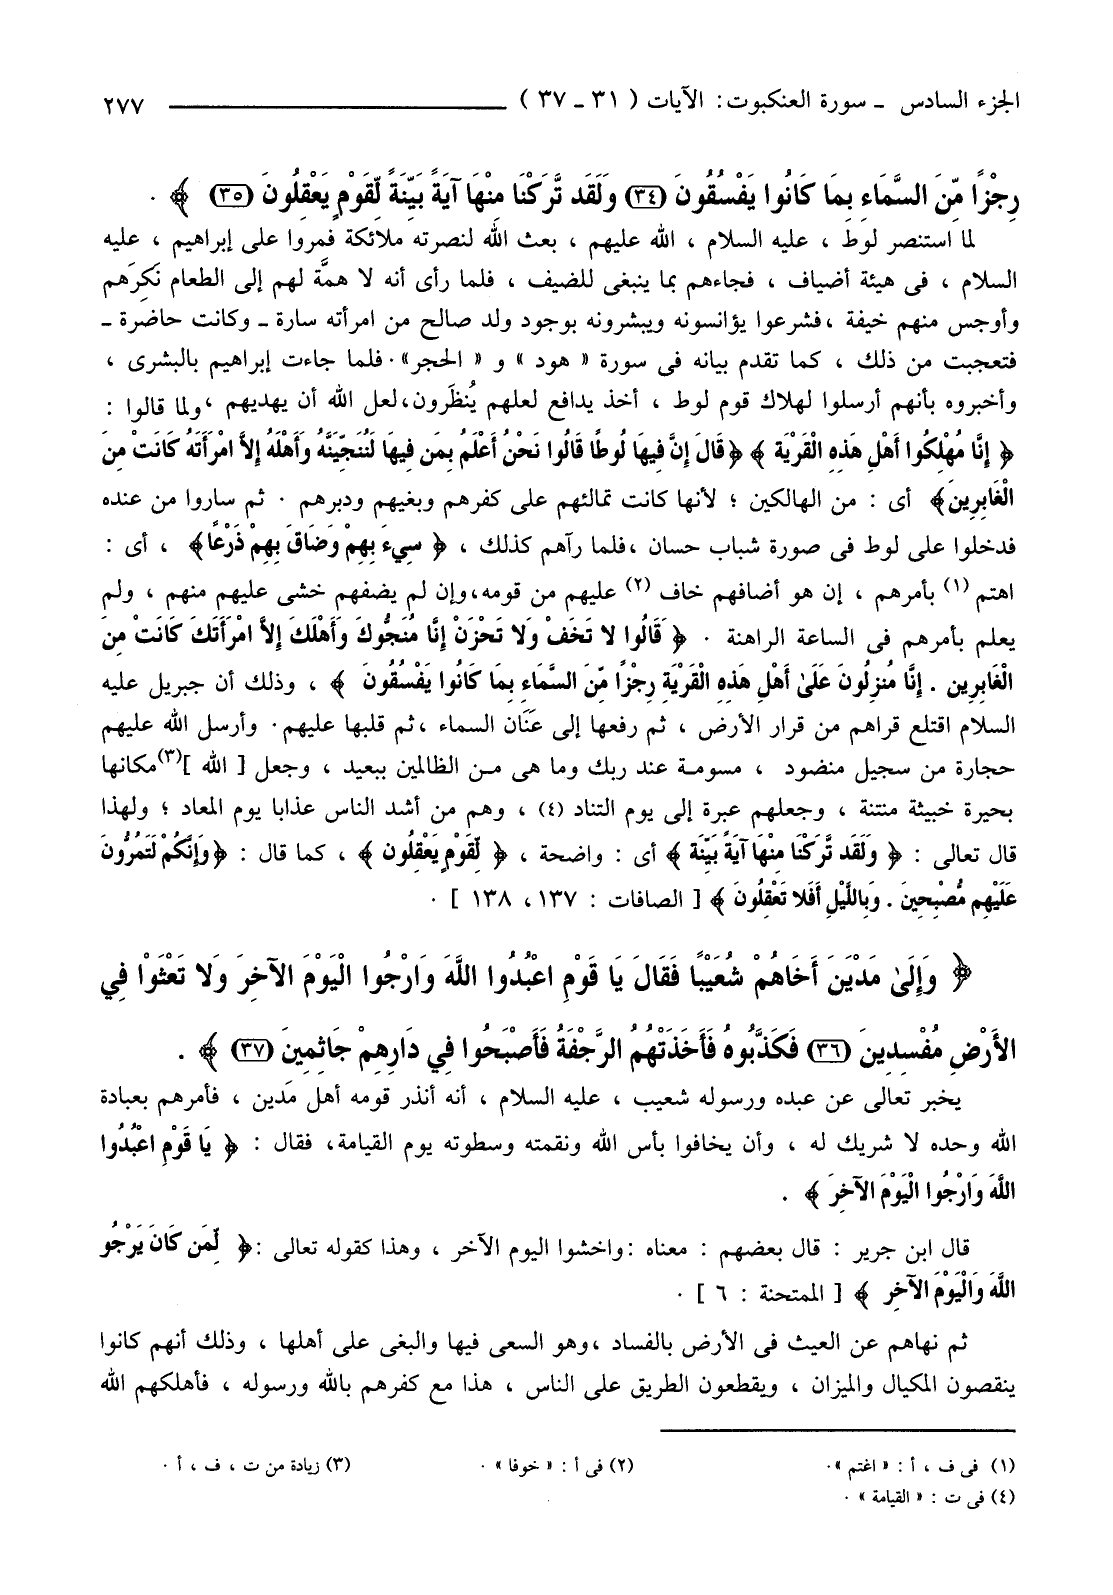 الجزء السادس - سورة العنكبوت: الآيات ( ٣١ - ٣٧ ) ٢٧٧
رِجْزًا مِّنَ السَّمَاءِ بِمَا كَانُوا يَفْسُقُونَ (٣٤) وَلَقَد تَّرَكْنَا مِنْهَا آيَةً بَيِّنَةً لِّقَوْمٍ يَعْقِلُونَ (٣٥) ﴾ .
لما استنصر لوط ، عليه السلام ، الله عليهم ، بعث الله لنصرته ملائكة فمروا على إبراهيم ، عليه
السلام ، فى هيئة أضياف ، فجاءهم بما ينبغى للضيف ، فلما رأى أنه لا همَّة لهم إلى الطعام نَكِرَهم
وأوجس منهم خيفة ،فشرعوا يؤانسونه ويبشرونه بوجود ولد صالح من امرأته سارة ـ وكانت حاضرة ـ
فتعجبت من ذلك ، كما تقدم بيانه فى سورة « هود » و « الحجر» . فلما جاءت إبراهيم بالبشرى ،
وأخبروه بأنهم أرسلوا لهلاك قوم لوط ، أخذ يدافع لعلهم يُنظَرون،لعل الله أن يهديهم ،ولما قالوا :
﴿ إِنَّا مُهْلِكُوا أَهْلِ هَذِهِ الْقَرْيَة ﴾ ﴿ قَالَ إِنَّ فِيهَا لُوطًا قَالُوا نَحْنُ أَعْلَمُ بِمَن فِيهَا لَنُنَجِّيَنَّهُ وَأَهْلَهُ إِلاَّ امْرَأَتَهُ كَانَتْ مِنَ
الْغَابِرِينَ﴾ أى : من الهالكين ؛ لأنها كانت تمالئهم على كفرهم وبغيهم ودبرهم . ثم ساروا من عنده
فدخلوا على لوط فى صورة شباب حسان ،فلما رآهم كذلك ، ﴿ سِيءَ بِهِمْ وَضَاقَ بِهِمْ ذَرْعًا﴾ ، أى :
اهتم (١) بأمرهم ، إن هو أضافهم خاف (٢) عليهم من قومه،وإن لم يضفهم خشى عليهم منهم ، ولم
يعلم بأمرهم فى الساعة الراهنة . ﴿ قَالُوا لا تَخَفْ وَلا تَحْزَنْ إِنَّا مُنَجُّوكَ وَأَهْلَكَ إِلاَّ امْرَأَتَكَ كَانَتْ مِنَ
الْغَابِرِين . إِنَّا مُنزِلُونَ عَلَىٰ أَهْلِ هَذِهِ الْقَرْيَةِ رِجْزًا مِّنَ السَّمَاءِ بِمَا كَانُوا يَفْسُقُونَ ﴾ ، وذلك أن جبريل عليه
السلام اقتلع قراهم من قرار الأرض ، ثم رفعها إلى عَنَان السماء ،ثم قلبها عليهم. وأرسل الله عليهم
حجارة من سجيل منضود ، مسومة عند ربك وما هى من الظالمين ببعيد ، وجعل [ الله ](٣)مكانها
بحيرة خبيثة منتنة ، وجعلهم عبرة إلى يوم التناد (٤) ، وهم من أشد الناس عذابا يوم المعاد ؛ ولهذا
قال تعالى : ﴿ وَلَقَد تَّرَكْنَا مِنْهَا آيَةً بَيِّنَة ﴾ أى : واضحة ، ﴿ لِّقَوْمٍ يَعْقِلُون ﴾ ، كما قال : ﴿وَإِنَّكُمْ لَتَمُرُّونَ
عَلَيْهِم مُّصْبِحِينَ . وَبِاللَّيْلِ أَفَلا تَعْقِلُونَ ﴾ [ الصافات : ١٣٧ ، ١٣٨ ] .
﴿ وَإِلَىٰ مَدْيَنَ أَخَاهُمْ شُعَيْبًا فَقَالَ يَا قَوْمِ اعْبُدُوا اللَّهَ وَارْجُوا الْيَوْمَ الآخِرَ وَلا تَعْثَوْا فِي
الأَرْضِ مُفْسِدِينَ (٣٦) فَكَذَّبُوهُ فَأَخَذَتْهُمُ الرَّجْفَةُ فَأَصْبَحُوا فِي دَارِهِمْ جَاثِمِينَ (٣٧) ﴾ .
يخبر تعالى عن عبده ورسوله شعيب ، عليه السلام ، أنه أنذر قومه أهل مَدين ، فأمرهم بعبادة
الله وحده لا شريك له ، وأن يخافوا بأس الله ونقمته وسطوته يوم القيامة، فقال : ﴿ يَا قَوْمِ اعْبُدُوا
اللَّهَ وَارْجُوا الْيَوْمَ الآخِرَ ﴾ .
قال ابن جرير : قال بعضهم : معناه :واخشوا اليوم الآخر ، وهذا كقوله تعالى :﴿ لِّمَن كَانَ يَرْجُو
اللَّهَ وَالْيَوْمَ الآخِر ﴾ [ الممتحنة : ٦ ] .
ثم نهاهم عن العيث فى الأرض بالفساد ،وهو السعى فيها والبغى على أهلها ، وذلك أنهم كانوا
ينقصون المكيال والميزان ، ويقطعون الطريق على الناس ، هذا مع كفرهم بالله ورسوله ، فأهلكهم الله
(١) فى ف ، أ : « اغتم ». (٢) فى أ : « خوفا » . (٣) زيادة من ت ، ف ، أ .
(٤) فى ت : « القيامة » .